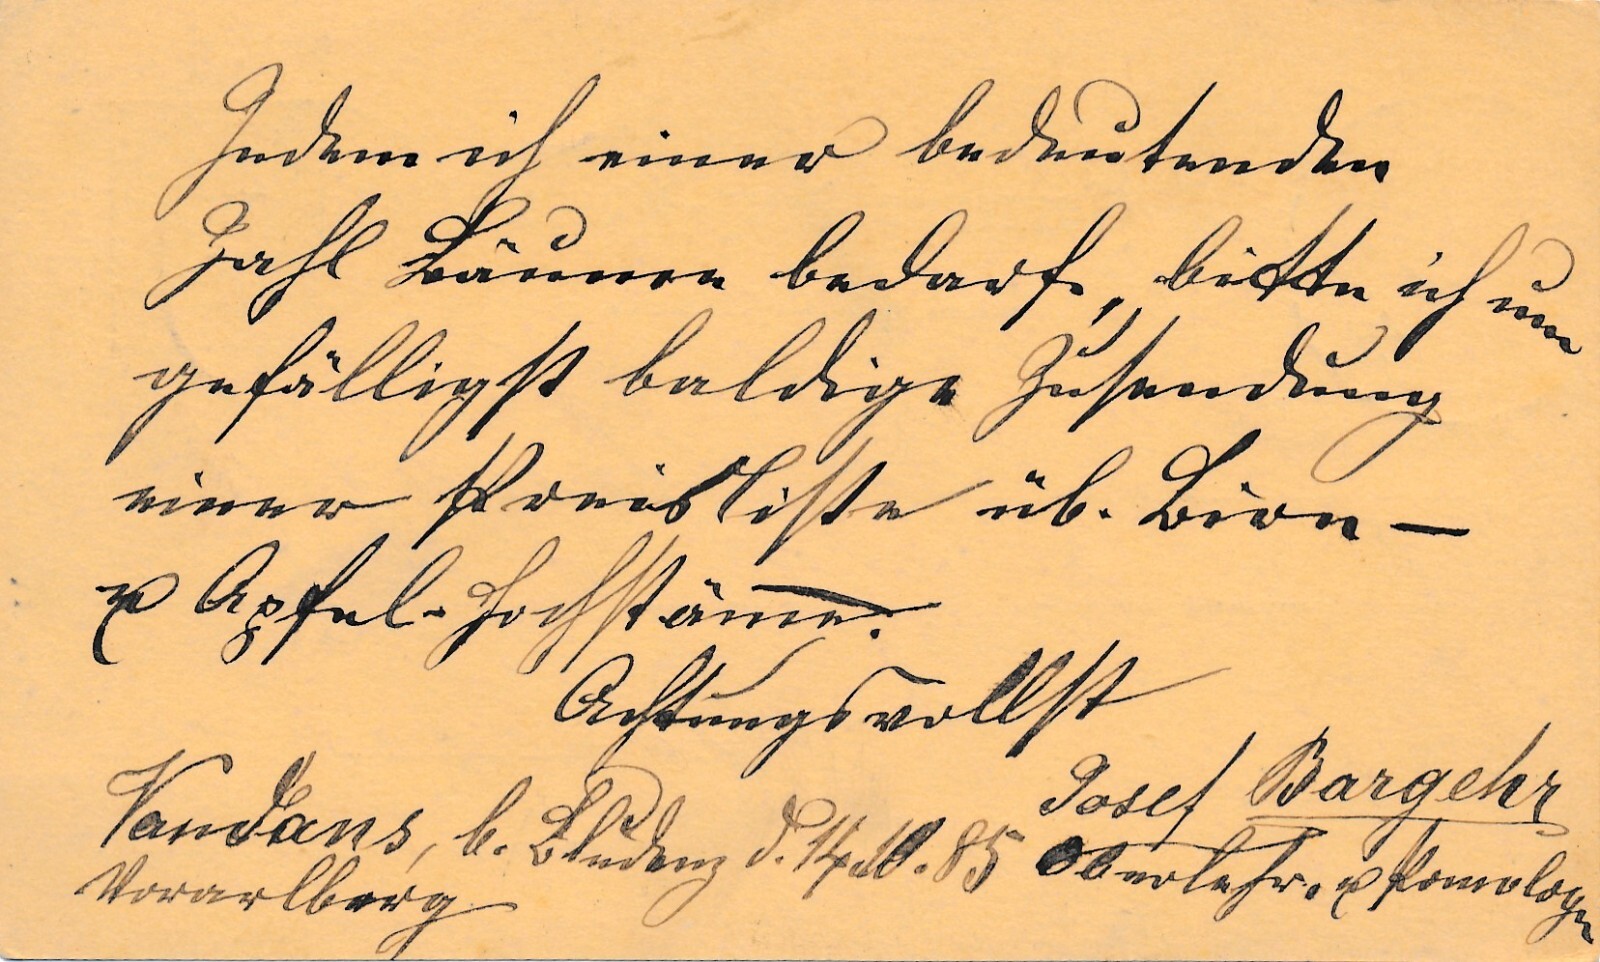 Indem ich einer bedeutenden
Zahl Bäume bedarf, bitte ich um
gefälligst baldige Zusendung
einer Preisliste üb. Birn-
u Apfel-Hochstäme.
Achtungsvollst
Josef Bargehr
Vandans, b. Bludenz d. 14.10.85 Oberlehr. u Pomologe
Vorarlberg